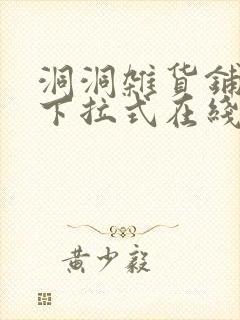 洞洞雜货鋪
下拉式在綫
黄少毅